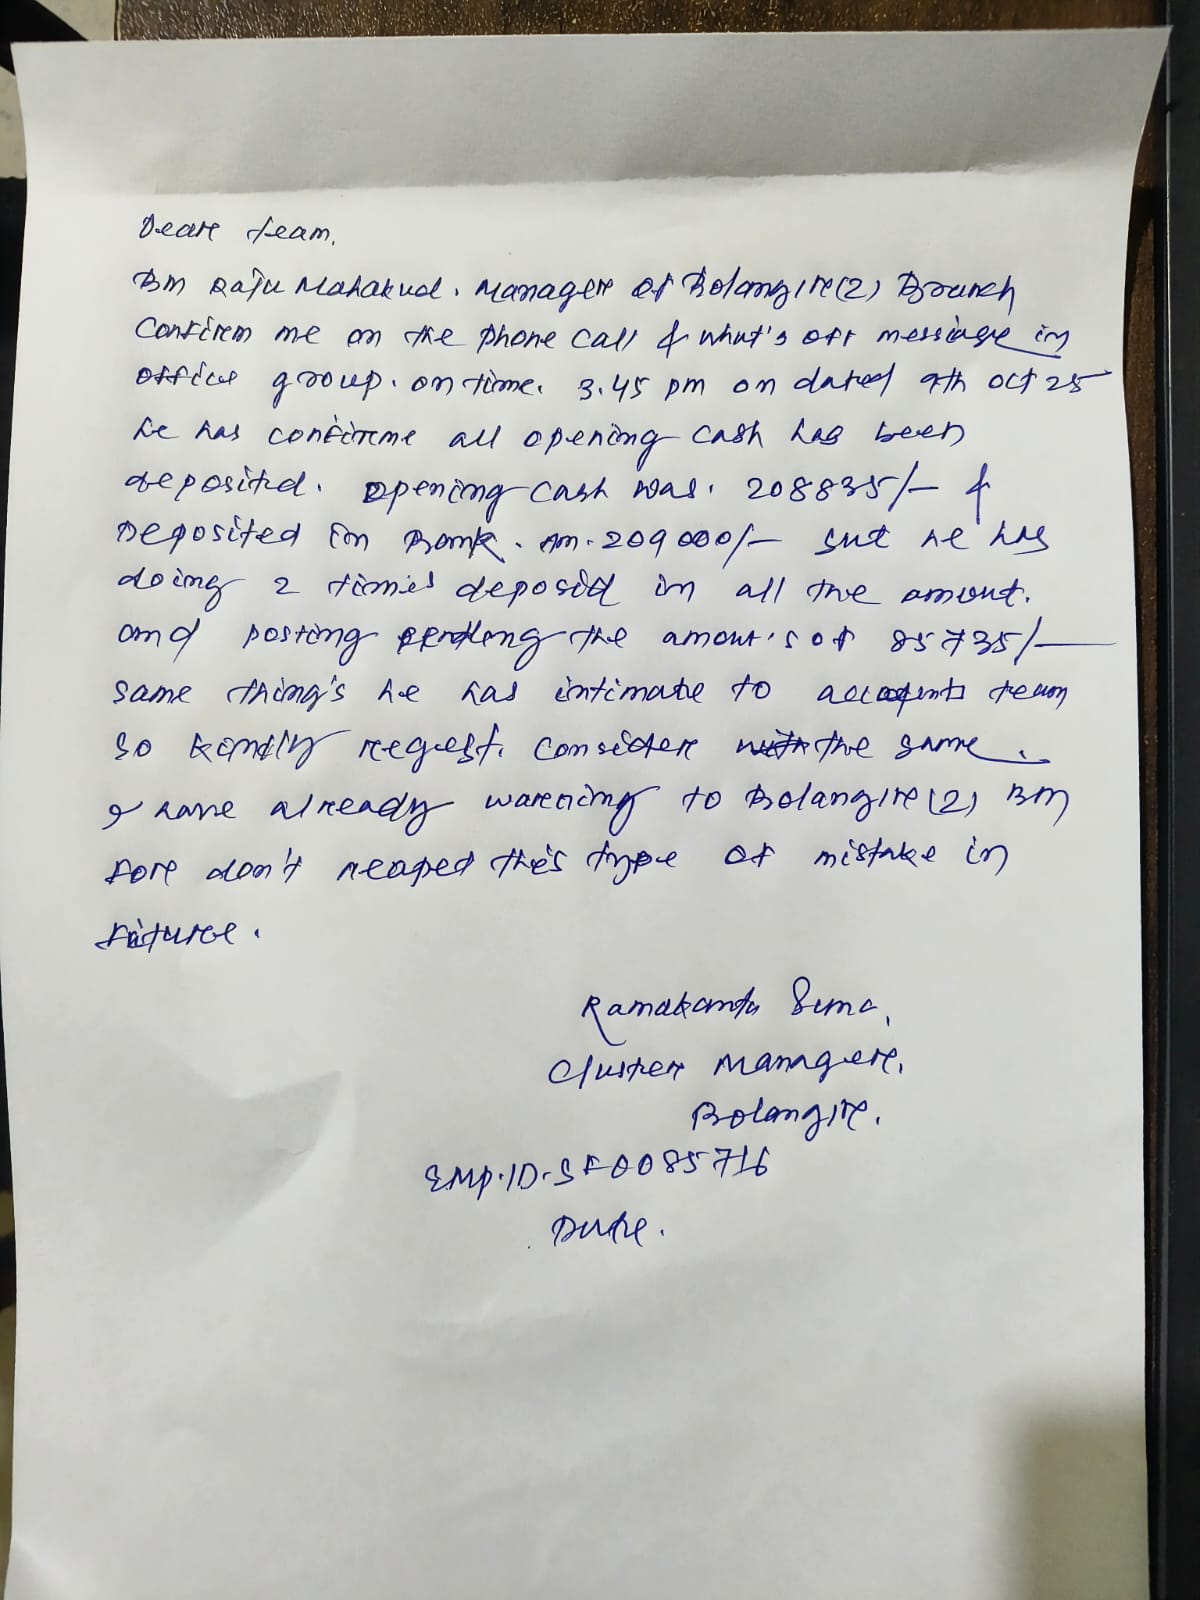 Deare team,
BM Raju Mahakud. Managere of Bolangire(2) Branch
Confirem me on the phone call & what's off message in
office group. on time. 3.45 pm on dated 9th oct 25
he has confireme all opening cash has been
deposited. opening cash was. 208835/- &
Deposited in Bank. Am. 209000/- but he has
doing 2 times deposid in all the amount.
and posting pending the amount's of 85735/-
same thing's he has intimate to accounts team
so kindly request. consider the same.
I have already warening to Bolangire(2) BM
fore don't reaped this type of mistake in
future.
Ramakanta Suna,
Cluster Managere,
Bolangire.
EMP.ID.SF0085716
Date.